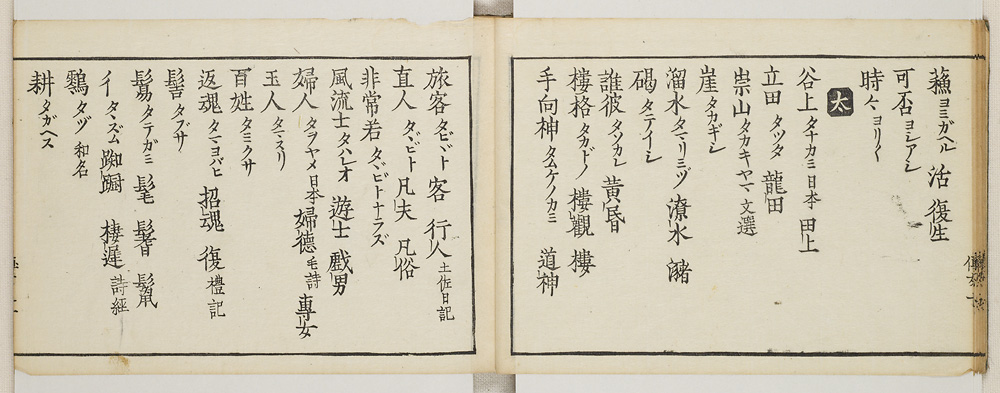 蘓 ヨミガヘル 活 復生
可否 ヨシアシ
時々 ヨリ〳〵
太
谷上 タナカミ 日本 田上
立田 タツタ 龍田
崇山 タカキヤマ 文選
崖 タカギシ
溜水 タマリミヅ 潦水 瀦
碣 タテイシ
誰彼 タソカレ 黄昏
樓格 タカドノ 樓觀 樓
手向神 タムケノカミ 道神
旅客 タビヾト 客 行人 土佐日記
直人 タヾビト 凡夫 凡俗
非常若 タヾビトナラズ
風流士 タハレオ 遊士 戯男
婦人 タヲヤメ 日本 婦德 毛詩 專女
玉人 タマスリ
百姓 タミクサ
返魂 タマヨバヒ 招魂 復 禮記
髻 タブサ
鬄 タテガミ 髦 鬐 鬣
彳 タヽズム 踟蹰 棲遲 詩經
鸐 タヅ 和名
耕 タガヘス